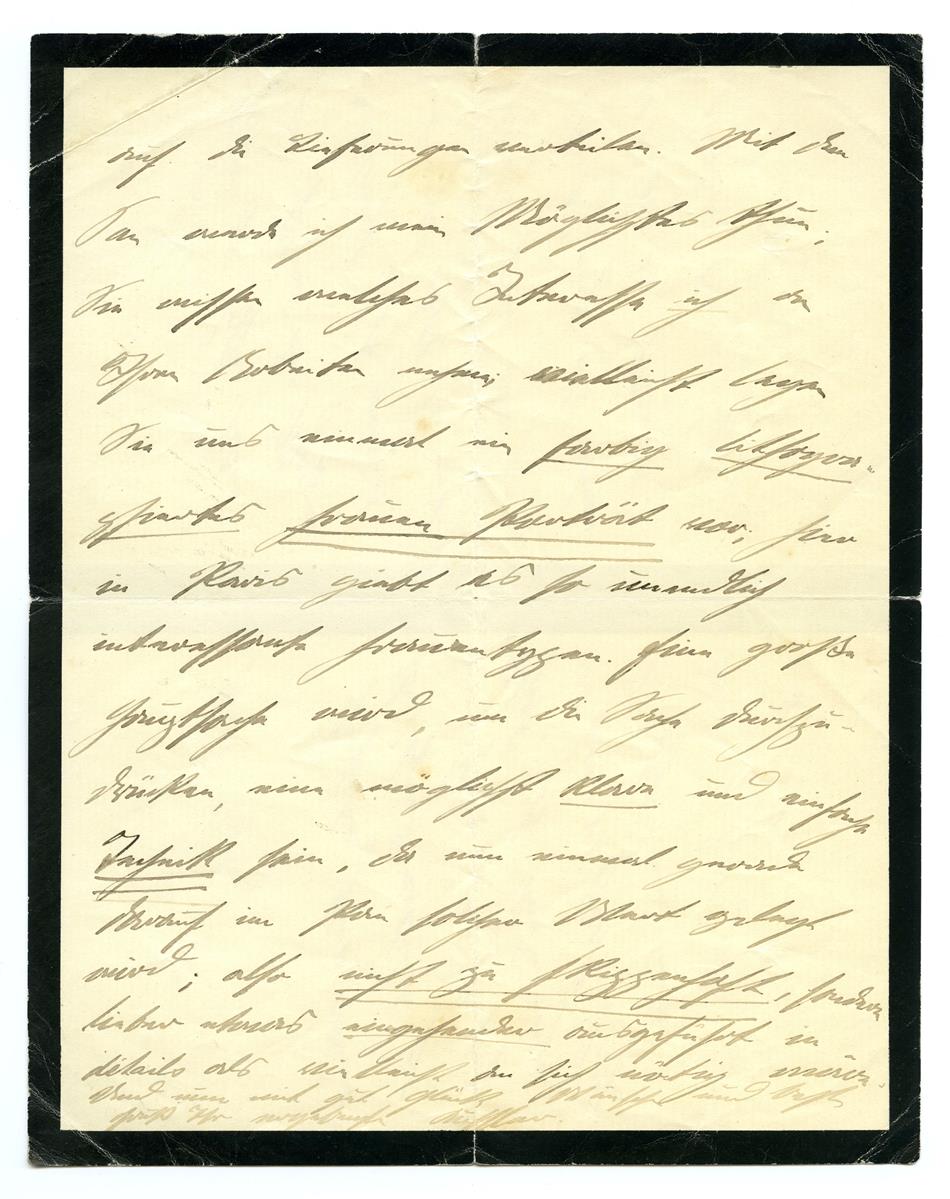 auf die Lieferungen verteilen. Mit dem
Pan werde ich mein Möglichstes thun,
Sie wissen welches Interesse ich an
Ihren Arbeiten nehme; vielleicht legen
Sie uns einmal ein farbig lithogra-
phiertes Frauen Porträt vor, hier
in Paris giebt es so unendlich
interessante Frauentypen. Eine große
Hauptsache wird, um die Sache durchzu-
drücken, eine möglichst klare und einfache
Technik sein, da nun einmal gerade
darauf im Pan solcher Wert gelegt
wird; also nicht zu skizzenhaft, sondern
lieber etwas eingehender ausgeführt in
details als vielleicht an sich nötig wäre.
Und nun mit gut Glück Wünschen und best
Gruß Ihr ergebenst